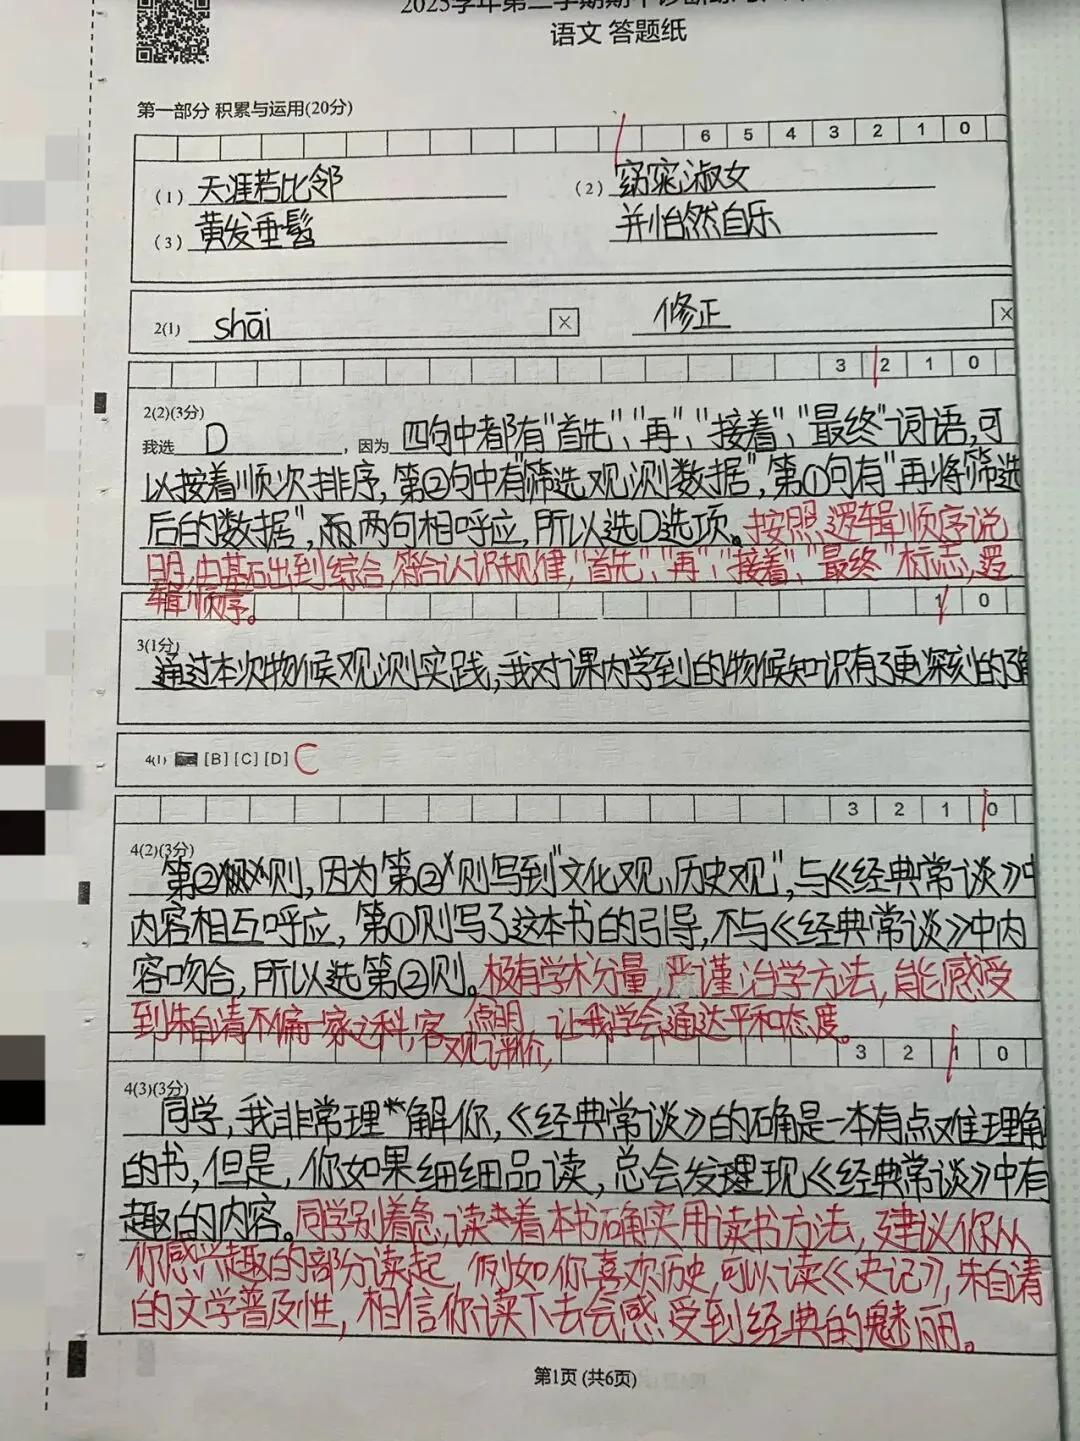 语文 答题纸
第一部分 积累与运用(20分)
6 5 4 3 2 1 0
(1) 天涯若比邻 (2) 窈窕淑女
(3) 黄发垂髫 并怡然自乐
2(1) shāi X 修正 X
3 2 1 0
2(2)(3分)
我选 D ,因为 四句中都有“首先”、“再”、“接着”、“最终”词语,可
以按着顺次排序,第②句中有“筛选观测数据”,第①句有“再将筛选
后的数据”,而两句相呼应,所以选D选项。按照逻辑顺序说
明,由基石出到综合,符合认识规律,“首先”、“再”、“接着”、“最终”标志,逻
辑顺序。
1 0
3(1分)
通过本次物候观测实践,我对课内学到的物候知识有了更深刻的
4(1) [B] [C] [D] C
3 2 1 0
4(2)(3分)
第②则,因为第②则写到“文化观、历史观”,与《经典常谈》中
内容相互呼应,第①则写了这本书的引导,不与《经典常谈》中内
容吻合,所以选第②则。极有学术分量,严谨治学方法,能感受
到朱自清不偏一家之科,客 点明,让我学会通达平和态度。
观评价,
3 2 1 0
4(3)(3分)
同学,我非常理解你,《经典常谈》的确是一本有点难理
的书,但是,你如果细细品读,总会发现《经典常谈》中有
趣的内容。同学别着急,读着本书确实用读书方法,建议你从
你感兴趣的部分读起,例如你喜欢历史,可以读《史记》,朱自清
的文学普及性,相信你读下去会感受到经典的魅丽。
第1页 (共6页)